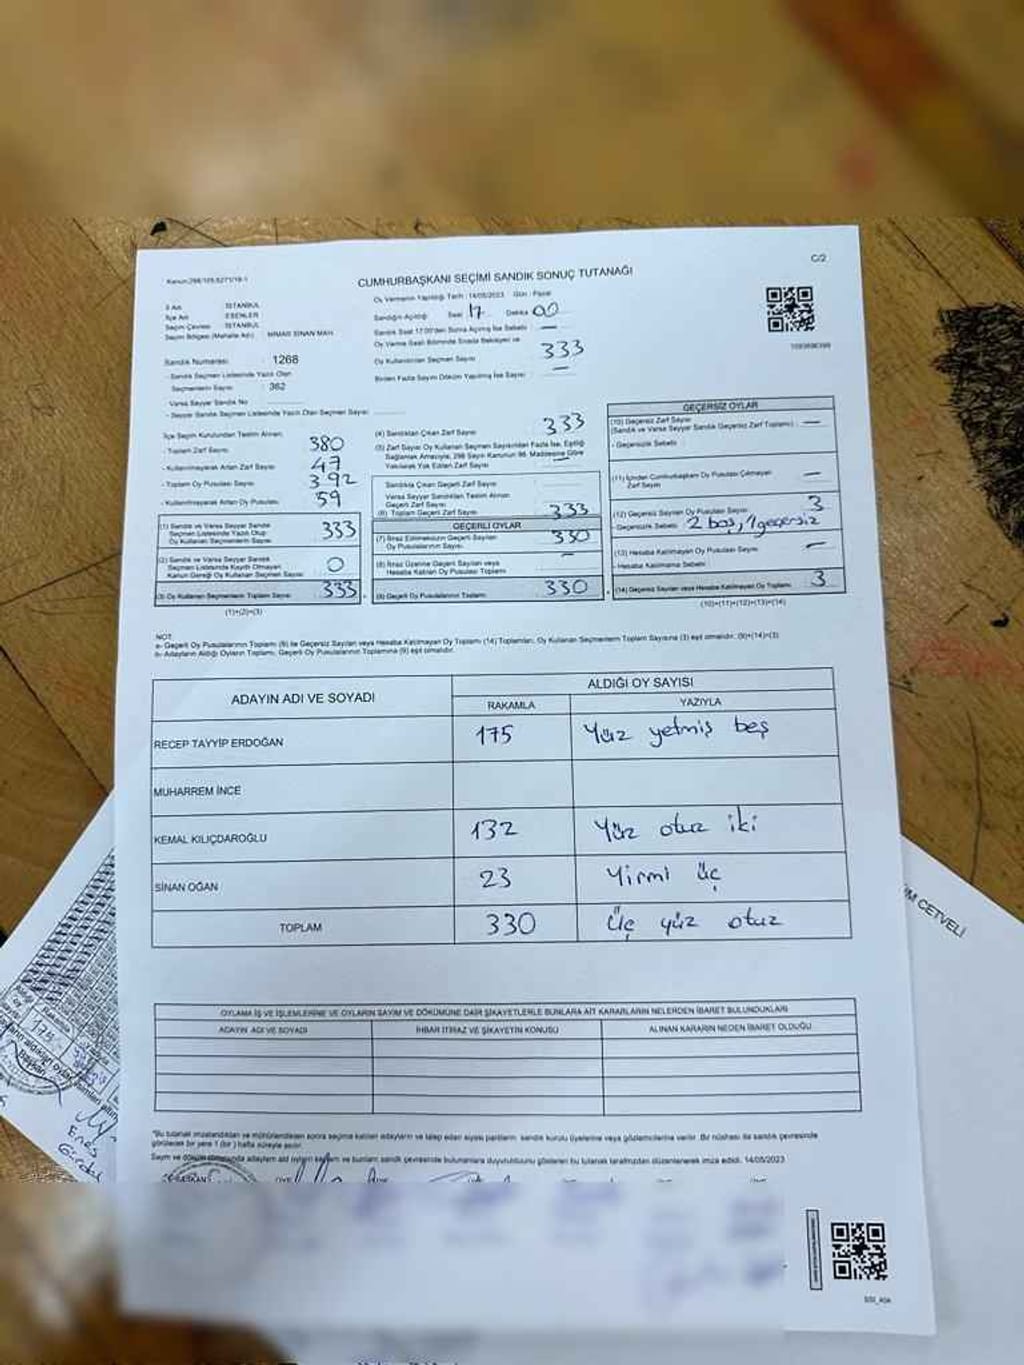 Kanun:298/105,6271/19-1
C/2
CUMHURBAŞKANI SEÇİMİ SANDIK SONUÇ TUTANAĞI
İl Adı İSTANBUL
İlçe Adı ESENLER
Seçim Çevresi İSTANBUL
Seçim Bölgesi (Mahalle Adı) MİMAR SİNAN MAH.
Sandık Numarası 1268
- Sandık Seçmen Listesinde Yazılı Olan
Seçmenlerin Sayısı 362
- Varsa Seyyar Sandık No
- Seyyar Sandık Seçmen Listesinde Yazılı Olan Seçmen Sayısı
Oy Vermenin Yapıldığı Tarih : 14/05/2023 Gün : Pazar
Sandığın Açıldığı Saat 17 Dakika 00
Sandık Saat 17.00'den Sonra Açılmış İse Sebebi —
Oy Verme Saati Bitiminde Sırada Bekleyen ve
Oy Kullandırılan Seçmen Sayısı 333
Birden Fazla Sayım Döküm Yapılmış İse Sayısı —
İlçe Seçim Kurulundan Teslim Alınan;
- Toplam Zarf Sayısı 380
- Kullanılmayarak Artan Zarf Sayısı 47
- Toplam Oy Pusulası Sayısı 392
- Kullanılmayarak Artan Oy Pusulası 59
(1) Sandık ve Varsa Seyyar Sandık
Seçmen Listesinde Yazılı Olup
Oy Kullanan Seçmenlerin Sayısı 333
(2) Sandık ve Varsa Seyyar Sandık
Seçmen Listesinde Kayıtlı Olmayan
Kanun Gereği Oy Kullanan Seçmen Sayısı 0
(3) Oy Kullanan Seçmenlerin Toplam Sayısı 333
(1)+(2)=(3)
(4) Sandıktan Çıkan Zarf Sayısı 333
(5) Zarf Sayısı Oy Kullanan Seçmen Sayısından Fazla İse, Eşitliği
Sağlamak Amacıyla, 298 Sayılı Kanunun 98. Maddesine Göre
Yakılarak Yok Edilen Zarf Sayısı —
Sandıkta Çıkan Geçerli Zarf Sayısı
Varsa Seyyar Sandıktan Teslim Alınan
Geçerli Zarf Sayısı
(6) Toplam Geçerli Zarf Sayısı 333
GEÇERLİ OYLAR
(7) İtiraz Edilmeksizin Geçerli Sayılan
Oy Pusulalarının Sayısı 330
(8) İtiraz Üzerine Geçerli Sayılan veya
Hesaba Katılan Oy Pusulası Toplamı —
(9) Geçerli Oy Pusulalarının Toplamı 330
GEÇERSİZ OYLAR
(10) Geçersiz Zarf Sayısı
(Sandık ve Varsa Seyyar Sandık Geçersiz Zarf Toplamı) —
- Geçersizlik Sebebi
(11) İçinden Cumhurbaşkanı Oy Pusulası Çıkmayan
Zarf Sayısı —
(12) Geçersiz Sayılan Oy Pusulası Sayısı 3
- Geçersizlik Sebebi 2 boş, 1 geçersiz
(13) Hesaba Katılmayan Oy Pusulası Sayısı —
- Hesaba Katılmama Sebebi
(14) Geçersiz Sayılan veya Hesaba Katılmayan Oy Toplamı 3
(10)+(11)+(12)+(13)=(14)
NOT:
a- Geçerli Oy Pusulalarının Toplamı (9) ile Geçersiz Sayılan veya Hesaba Katılmayan Oy Toplamı (14) Toplamları, Oy Kullanan Seçmenlerin Toplam Sayısına (3) eşit olmalıdır. (9)+(14)=(3)
b- Adayların Aldığı Oyların Toplamı, Geçerli Oy Pusulalarının Toplamına (9) eşit olmalıdır.
ADAYIN ADI VE SOYADI ALDIĞI OY SAYISI
RAKAMLA YAZIYLA
RECEP TAYYİP ERDOĞAN 175 Yüz yetmiş beş
MUHARREM İNCE
KEMAL KILIÇDAROĞLU 132 Yüz otuz iki
SİNAN OĞAN 23 Yirmi üç
TOPLAM 330 Üç yüz otuz
OYLAMA İŞ VE İŞLEMLERİNE VE OYLARIN SAYIM VE DÖKÜMÜNE DAİR ŞİKAYETLERLE BUNLARA AİT KARARLARIN NELERDEN İBARET BULUNDUKLARI
ADAYIN ADI VE SOYADI İHBAR İTİRAZ VE ŞİKAYETİN KONUSU ALINAN KARARIN NEDEN İBARET OLDUĞU
*Bu tutanak imzalandıktan ve mühürlendikten sonra seçime katılan adayların ve talep eden siyasi partilerin sandık kurulu üyelerine veya gözlemcilerine verilir. Bir nüshası da sandık çevresinde
görülecek bir yere 1 (bir) hafta süreyle asılır.
Sayım ve döküm sonucunda adayların aldığı oyları sayılan ve bunların sandık çevresinde bulunanlara duyurulduğunu gösteren bu tutanak tarafımızdan düzenlenerek imza edildi. 14/05/2023
BAŞKAN
ÜYE
M CETVELİ
Başkan
Enes